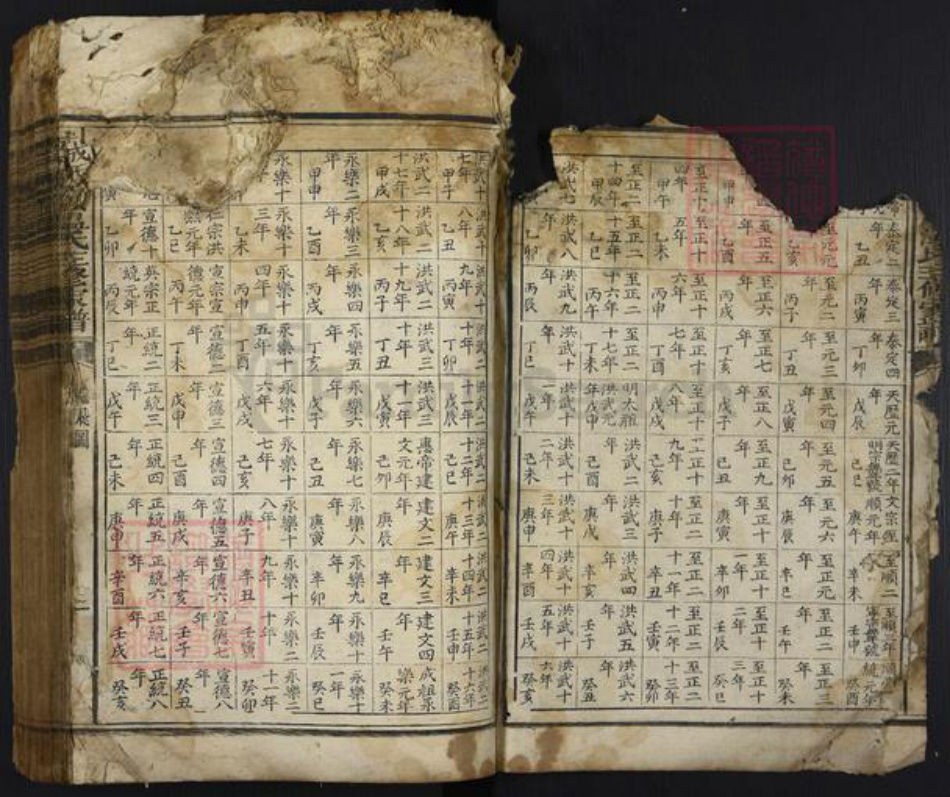 泰定二年乙丑 泰定三年丙寅 泰定四年丁卯 天歷元年戊辰 天歷二年己巳 順元年庚午 至順二年辛未 至順三年壬申 統元年癸酉
至元元乙亥 至元二年丙子 至元三年丁丑 至元四年戊寅 至元五年己卯 至元六年庚辰 至正元年辛巳 至正二年壬午 至正三年癸未
甲申 至正五年乙酉 至正六年丙戌 至正七年丁亥 至正八年戊子 至正九年己丑 至正十年庚寅 至正十一年辛卯 至正十二年壬辰 至正十三年癸巳
至正十四年甲午 至正十五年乙未 至正十六年丙申 至正十七年丁酉 至正十八年戊戌 至正十九年己亥 至正二十年庚子 至正二十一年辛丑 至正二十二年壬寅 至正二十三年癸卯
至正二十四年甲辰 至正二十五年乙巳 至正二十六年丙午 至正二十七年丁未 明太祖洪武元年戊申 洪武二年己酉 洪武三年庚戌 洪武四年辛亥 洪武五年壬子 洪武六年癸丑
洪武七 洪武八年乙卯 洪武九年丙辰 洪武十年丁巳 洪武十一年戊午 洪武十二年己未 洪武十三年庚申 洪武十四年辛酉 洪武十五年壬戌 洪武十六年癸亥
洪武十七年甲子 洪武十八年乙丑 洪武十九年丙寅 洪武二十年丁卯 洪武二十一年戊辰 洪武二十二年己巳 洪武二十三年庚午 洪武二十四年辛未 洪武二十五年壬申 洪武二十六年癸酉
洪武二十七年甲戌 洪武二十八年乙亥 洪武二十九年丙子 洪武三十年丁丑 洪武三十一年戊寅 惠帝建文元年己卯 建文二年庚辰 建文三年辛巳 建文四年壬午 成祖永樂元年癸未
永樂二年甲申 永樂三年乙酉 永樂四年丙戌 永樂五年丁亥 永樂六年戊子 永樂七年己丑 永樂八年庚寅 永樂九年辛卯 永樂十年壬辰 永樂十一年癸巳
永樂十 永樂十三年乙未 永樂十四年丙申 永樂十五年丁酉 永樂十六年戊戌 永樂十七年己亥 永樂十八年庚子 永樂十九年辛丑 永樂二十年壬寅 永樂二十一年癸卯
仁宗洪熙元年乙巳 宣宗宣德元年丙午 宣德二年丁未 宣德三年戊申 宣德四年己酉 宣德五年庚戌 宣德六年辛亥 宣德七年壬子 宣德八年癸丑
宣德十年乙卯 英宗正統元年丙辰 正統二年丁巳 正統三年戊午 正統四年己未 正統五年庚申 正統六年辛酉 正統七年壬戌 正統八癸亥